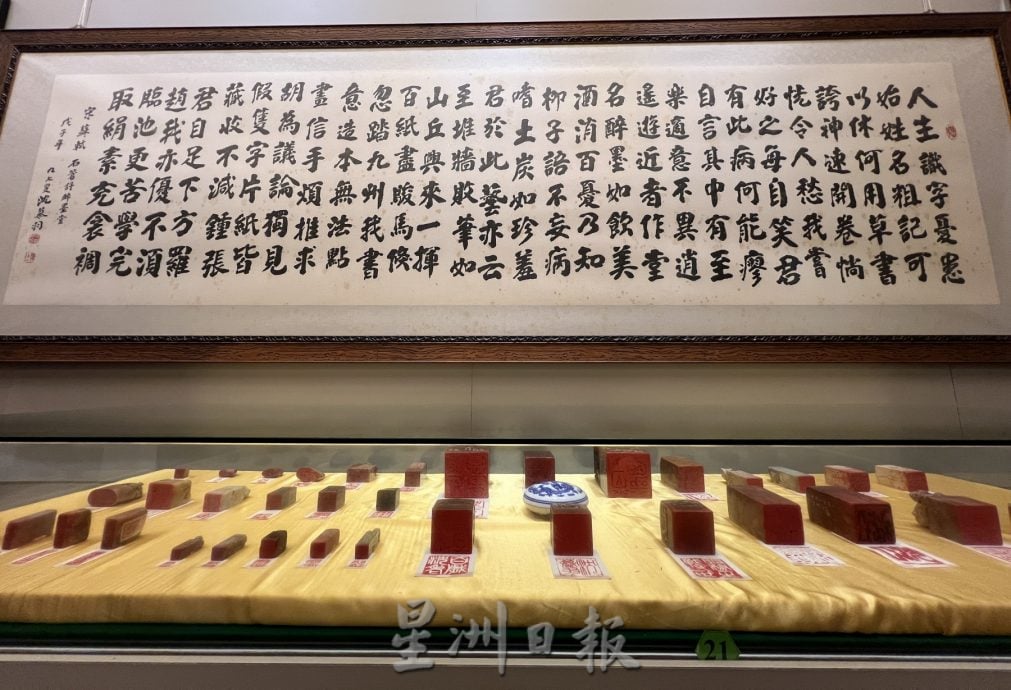 人生識字憂患
始姓名粗記可
以休何用草書
誇神速開卷惝
怳令人愁我嘗
好之每自笑君
有此病何能瘳
自言其中有至
樂適意不異逍
遙遊近者作堂
名醉墨如飲美
酒消百憂乃知
柳子語不妄病
嗜土炭如珍羞
君於此藝亦云
至堆牆敗筆如
山丘興來一揮
百紙盡駿馬倏
忽踏九州我書
意造本無法點
畫信手煩推求
胡為議論獨見
假隻字片紙皆
藏收不減鍾張
君自足下方羅
趙我亦優不須
臨池更苦學完
取絹素充衾裯
宋蘇軾 石蒼舒醉墨堂
戊子年 叟沈慕羽
星洲日報
21